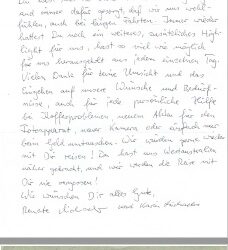 immer dafür gesorgt, daß wir uns wohl-
fühlen, auch bei langen Fahrten. Immer wieder
hattest Du noch ein weiteres, zusätzliches High-
light für uns, hast so viel wie möglich
für uns herausgeholt aus jedem einzelnen Tag.
Vielen Dank für deine Umsicht und das
Eingehen auf unsere Wünsche und Bedürf-
nisse, auch für jede persönliche Hilfe
bei Stoffproblemen, neuen Akku für den
Fotoapparat, neuer Kamera oder einfach nur
beim Geld umtauschen. Wir würden gerne wieder
mit Dir reisen! Du hast uns Westaustralien
näher gebracht, und wir werden die Reise mit
Dir nie vergessen!
Wir wünschen Dir alles Gute,
Renate und Karin